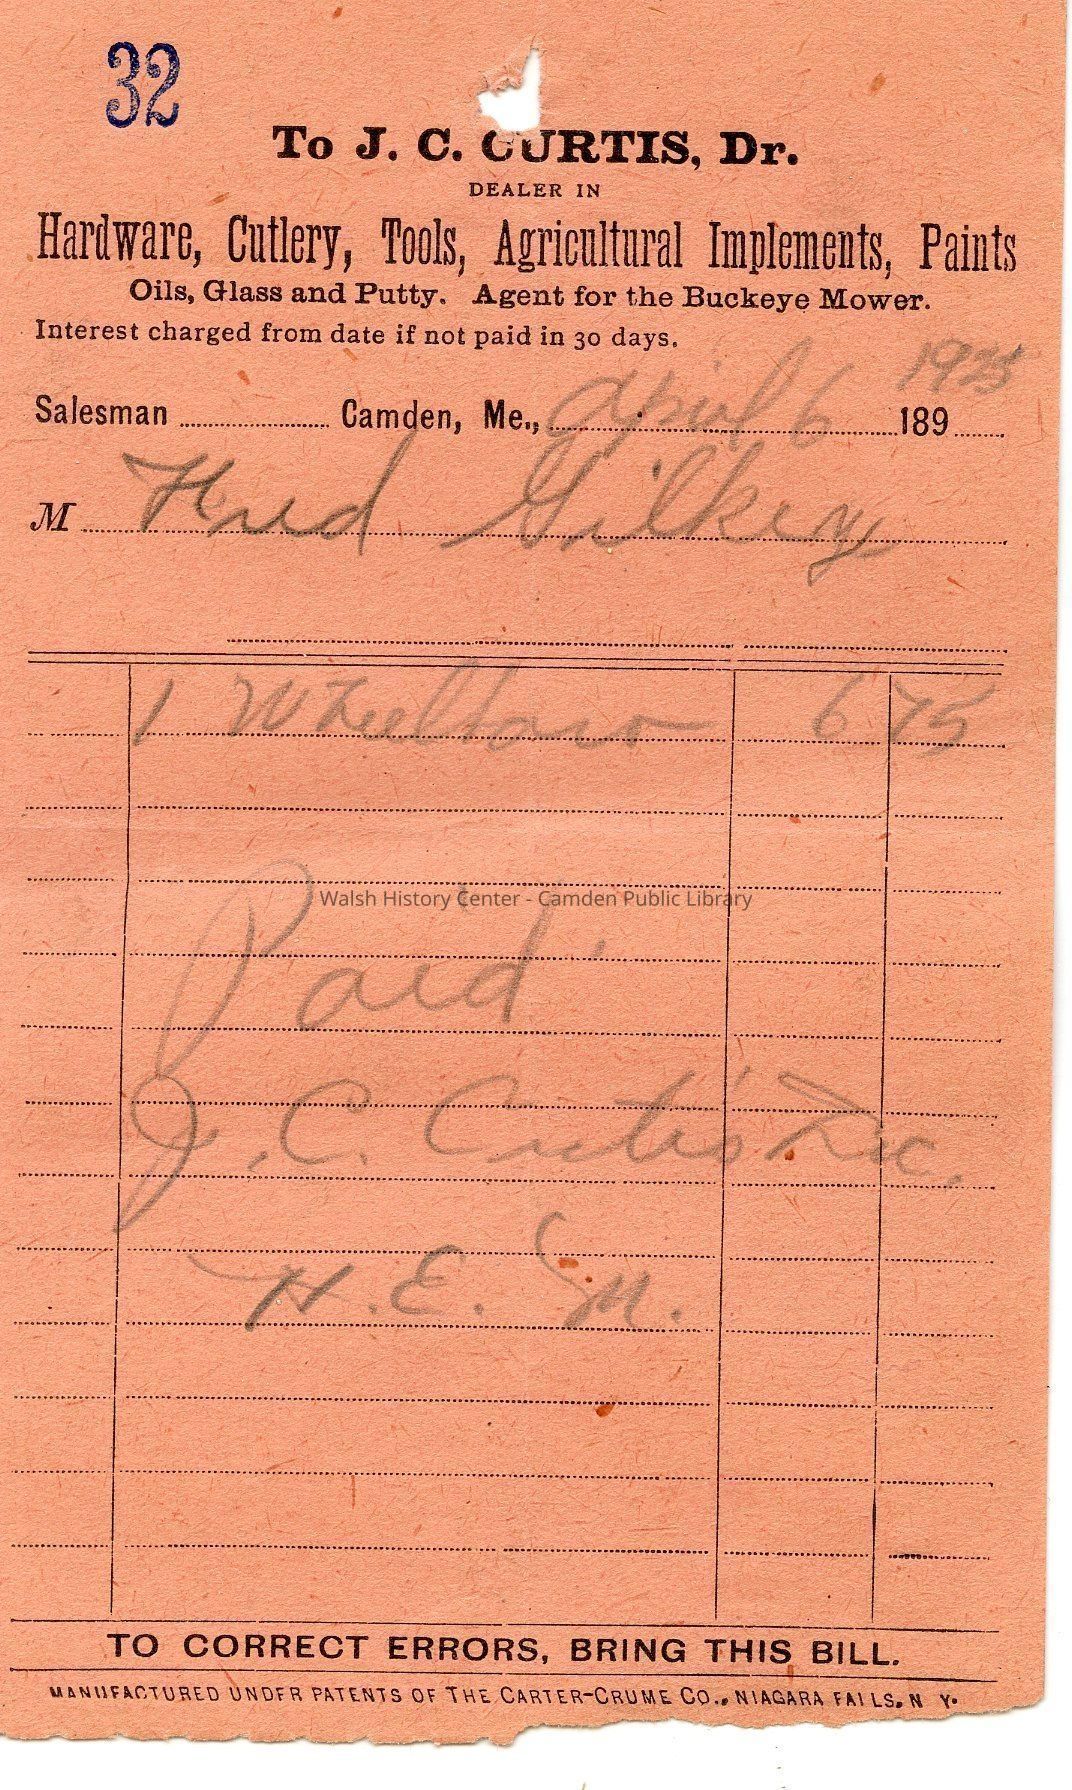 32
To J. C. CURTIS, Dr.
DEALER IN
Hardware, Cutlery, Tools, Agricultural Implements, Paints
Oils, Glass and Putty. Agent for the Buckeye Mower.
Interest charged from date if not paid in 30 days.
1925
Salesman Camden, Me., April 6 189
M Fred Gilkey
1 Wheelbaro 6 75
Walsh History Center - Camden Public Library
Paid
J. C. Curtis Inc.
H. E. M.
TO CORRECT ERRORS, BRING THIS BILL.
MANUFACTURED UNDER PATENTS OF THE CARTER-CRUME CO., NIAGARA FALLS, N Y.